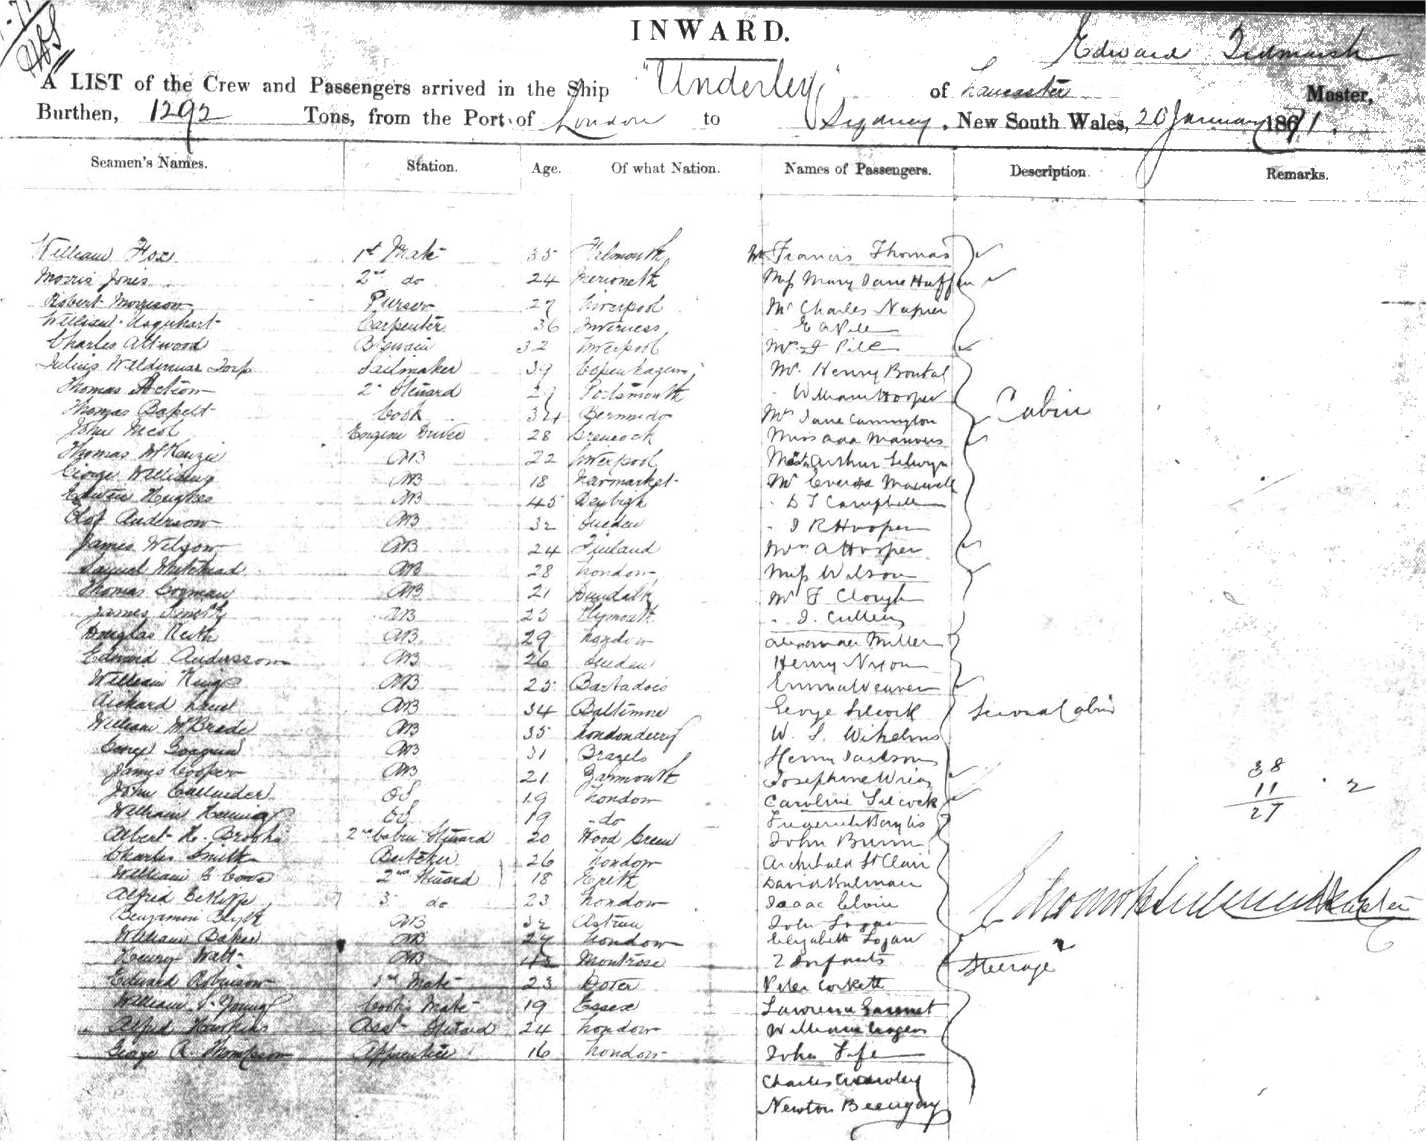 INWARD.
Edward Tidmarsh
A LIST of the Crew and Passengers arrived in the Ship "Underley" of Lancaster Master,
Burthen, 1292 Tons, from the Port of London to Sydney, New South Wales, 20 January 1871.
Seamen's Names. Station. Age. Of what Nation. Names of Passengers. Description. Remarks.
William Fox 1st Mate 35 Falmouth Mr Francis Thomas
Morris Jones 2nd do 24 Merioneth Miss Mary Jane
Robert Morrison Purser 27 Liverpool Mr Charles Napier
William Urquhart Carpenter 36 Inverness E A Pill
Charles Attwood B'swain 32 Liverpool Mrs Pill
Julius Waldemar Sailmaker 39 Copenhagen Mr Henry
Thomas 2nd Steward 27 Portsmouth William Hooper
Thomas Cook 34 Bermuda Mrs Jane Cabin
John Engine Driver 28 Greenock Miss Ada Manvers
Thomas McKenzie AB 22 Liverpool Arthur Selwyn
George Williams AB 18 Mr Maxwell
Edwin Hughes AB 45 D T Campbell
Olof Anderson AB 32 Sweden J R Hooper
James Wilson AB 24 Finland Mrs A Hooper
Samuel Whitehead AB 28 London Miss Wilson
Thomas Gorman AB 21 Dundalk Mr F Clough
James Smith AB 25 Plymouth J. Cullen
Douglas Keith AB 29 London Alexander Miller
Edward Anderson AB 26 Sweden Henry Nixon
William King AB 25 Barbadoes Emma Weaver
Richard AB 34 Baltimore George Silcock Second Cabin
William McBride AB 35 Londonderry W. S. Wilhelms
George AB 31 Brazils Henry Jackson
James Cooper AB 21 Yarmouth Josephine 38
John Callender OS 19 London Caroline Silcock 11 2
William OS 19 do Frederick 27
Albert H. Brooks 2nd Cabin Steward 20 Wood Green John Bunn
Charles Smith Butcher 26 London Archibald St Clair
William G Cove 2nd Steward 18 Erith David Bulman
Alfred 3 do 23 London Isaac
Benjamin Blyth AB 32 John Logan
William Baker AB 27 London Elizabeth Logan
Henry Watt AB 45 Montrose 2 Infants Steerage
Edward Robinson 3rd Mate 23 Dover Peter Corkett
William J. Young Cooks Mate 19 Essex Lawrence
Alfred Hawkins Asst Steward 24 London William Rogers
George R. Thompson Apprentice 16 London John Fife
Charles
Newton